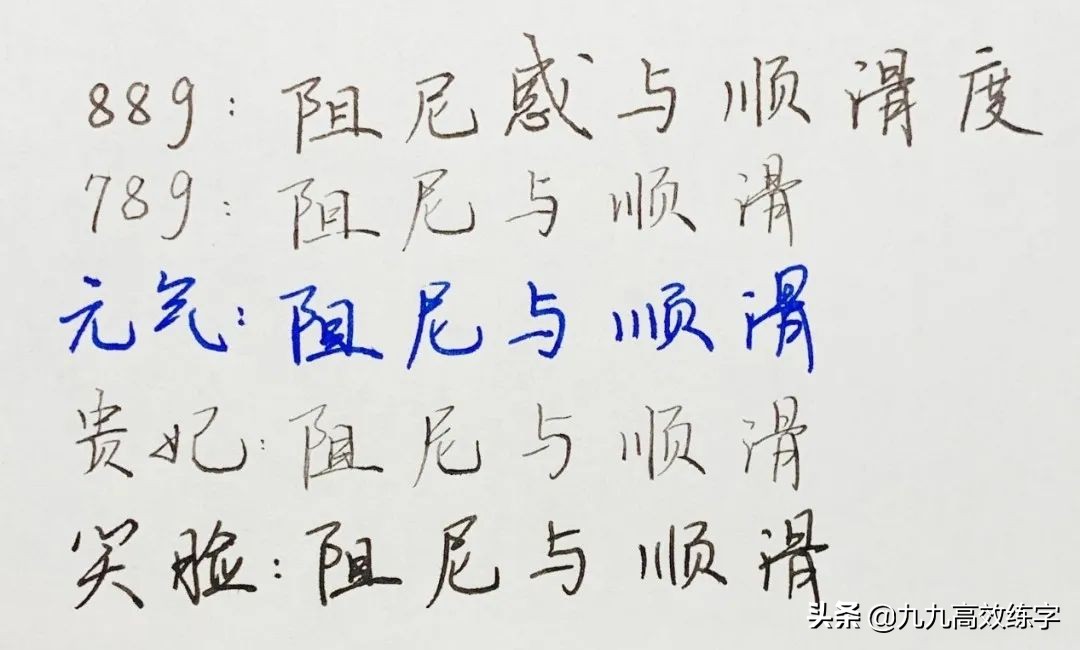 889：阻尼感与顺滑度
789：阻尼与顺滑
元气：阻尼与顺滑
贵妃：阻尼与顺滑
笑脸：阻尼与顺滑
头条 @九九高效练字